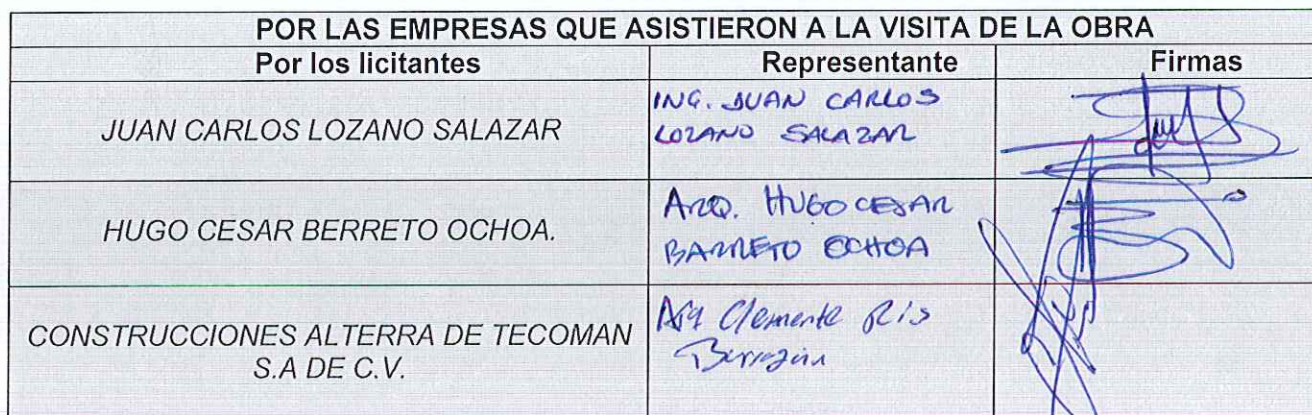 POR LAS EMPRESAS QUE ASISTIERON A LA VISITA DE LA OBRA
Por los licitantes Representante Firmas
JUAN CARLOS LOZANO SALAZAR
ING. JUAN CARLOS
LOZANO SALAZAR
HUGO CESAR BERRETO OCHOA.
ARQ. HUGO CESAR
BARRETO OCHOA
CONSTRUCCIONES ALTERRA DE TECOMAN
S.A DE C.V.
Arq Clemente